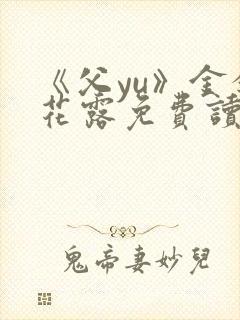 《父yu》全
花露免費讀
鬼帝妻妙兒